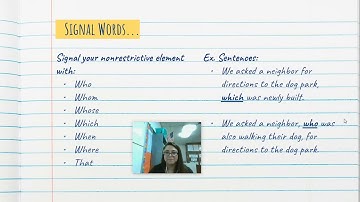 SIGNAL WORDS...
Signal your nonrestrictive element
with:
• Who
• Whom
• Whose
• Which
• When
• Where
• That
Ex. Sentences:
• We asked a neighbor for
directions to the dog park,
which was newly built.
• We asked a neighbor, who was
also walking their dog, for
directions to the dog park.